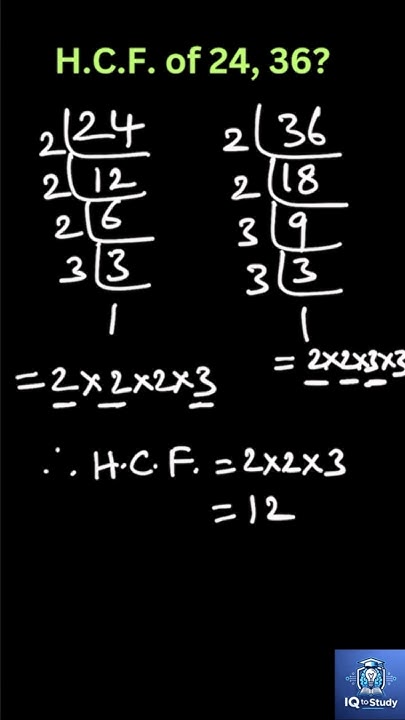 H.C.F. of 24, 36?
2 24
2 12
2 6
3 3
1
= 2×2×2×3
2 36
2 18
3 9
3 3
1
= 2×2×3×3
∴ H.C.F. = 2×2×3
= 12
IQ to Study